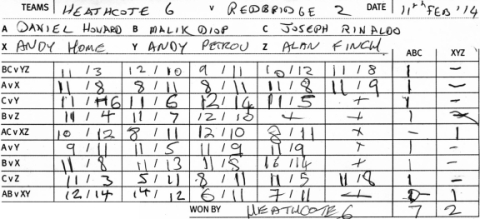 TEAMS HEATHCOTE 6 V REDBRIDGE 2 DATE 11th FEB '14
A DANIEL HOWARD B MALIK DIOP C JOSEPH RINALDO
X ANDY HOME Y ANDY PETROU Z ALAN FINCH
ABC XYZ
BCvYZ 11/3 12/10 9/11 10/12 11/8 1 -
AvX 11/8 8/11 8/11 11/8 11/9 1 -
CvY 11/6 11/6 12/14 11/5 + 1 -
BvZ 11/4 11/7 12/10 + + 1 -
ACvXZ 10/12 8/11 12/10 8/11 x - 1
AvY 9/11 11/5 11/9 11/9 + 1 -
BvX 11/8 11/13 11/5 16/14 + 1 -
CvZ 11/3 5/11 8/11 11/5 11/8 1 -
ABvXY 12/14 14/12 6/11 7/11 x 1
WON BY HEATHCOTE 6 7 2